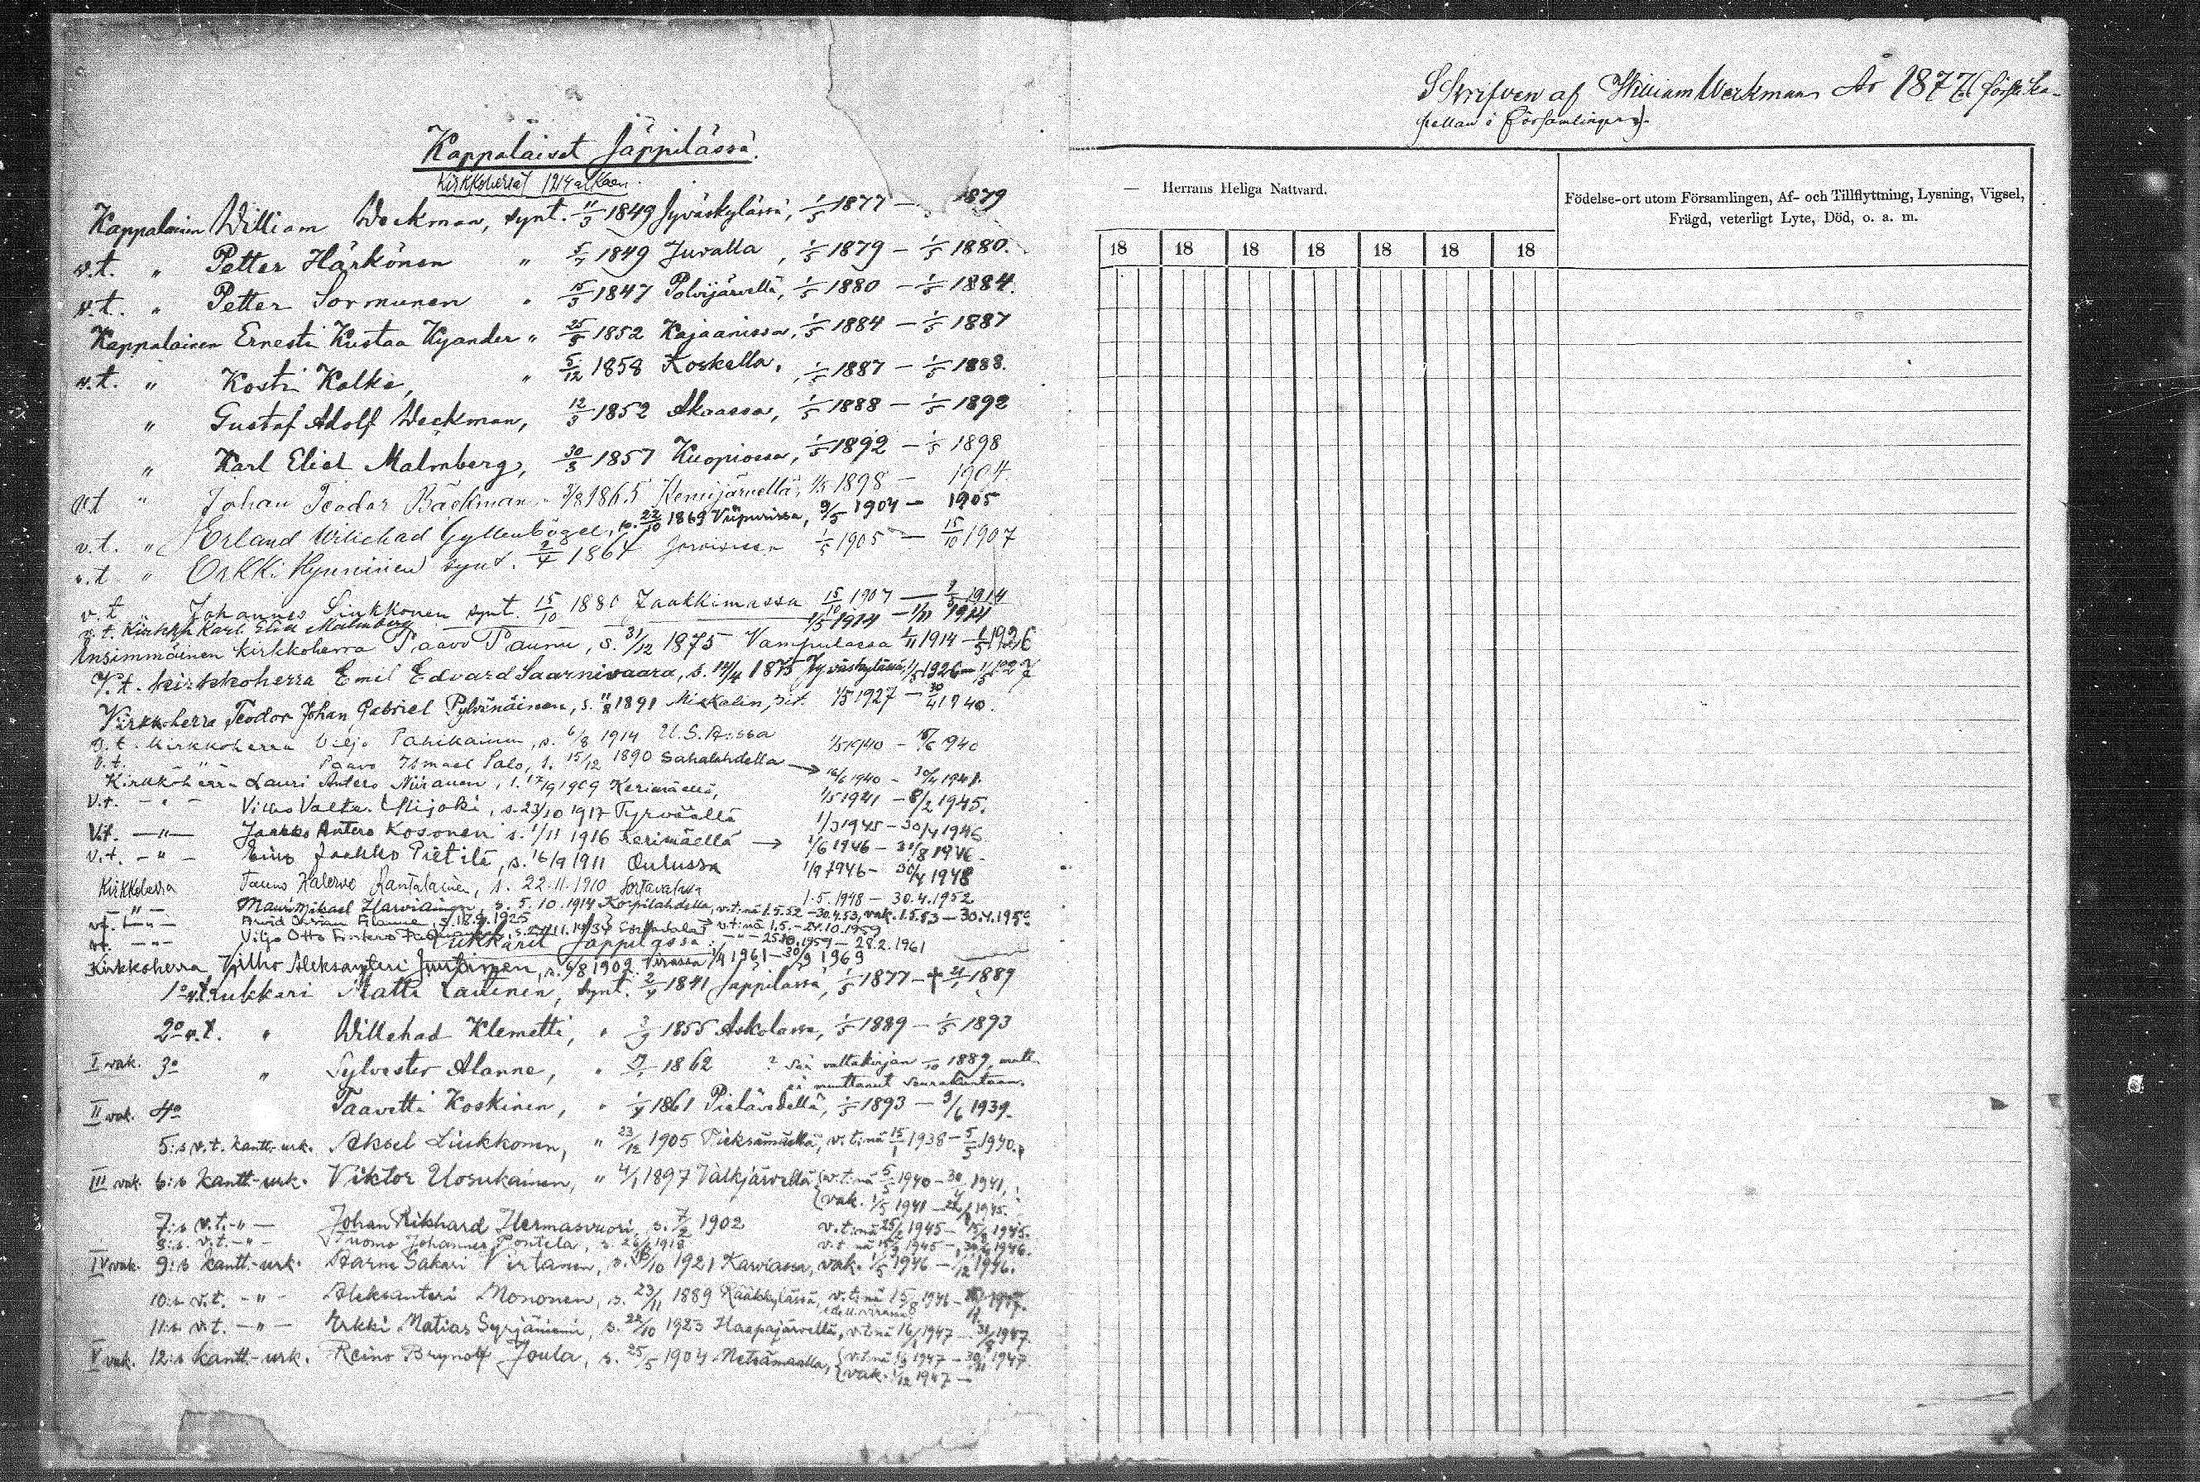 Kappalaiset Jäppilässä.
Kirkkoherrat 1914 alkaen.
Kappalainen William Weckman, synt. 11/3 1849 Jyväskylässä, 1/5 1877 — 1879
v.t. " Petter Härkönen " 1849 Juvalla, 1/5 1879 — 1/5 1880.
v.t. " Petter Sormunen " 1847 Polvijärvellä, 1/5 1880 — 1/5 1884.
Kappalainen Ernesti Kustaa Kyander " 25/5 1852 Kajaanissa, 1/5 1884 — 1/5 1887
v.t. " Kosti Kalke, " 5/12 1858 Koskella, 1/5 1887 — 1/5 1888.
" Gustaf Adolf Weckman, 12/3 1852 Akaassa, 1/5 1888 — 1/5 1892
" Karl Elict Malmberg, 30/3 1857 Kuopiossa, 1/5 1892 — 1/5 1898
v.t " Johan Teodor Bäckman 1865 Kemijärvellä, 1/5 1898 — 1904
v.t. " Erland Wilichad Gyllenbögel, s. 22/10 1869 Viipurissa, 9/5 1904 — 1905
v.t " Erkki Hynninen synt. 2/4 1864 1/5 1905 — 15/10 1907
v.t " Johannes Sinkkonen synt. 15/10 1880 Jaakkimassa 15/10 1907 — 1/5 1914
v.t. Kirkkh Karl Elict Malmberg 1/5 1914 — 1/11 1914
Ensimmäinen kirkkoherra Paavo Paunu, s. 31/12 1875 Vampulassa 1/11 1914 — 1/5 1926
V.t. kirkkoherra Emil Edvard Saarnivaara, s. 14/4 1875 Jyväskylässä, 1/5 1926 — 1/5 1927
Kirkkoherra Teodor Johan Gabriel Pylvänäinen, s. 11/8 1891 Mikkelin, 1/5 1927 — 30/4 1940.
v.t. kirkkoherra Viljo Pahikainen, s. 6/8 1914 U.S.A:ssa 1/5 1940 — 1940
v.t. " Paavo Ismael Palo, s. 15/12 1890 Sahalahdella → 16/6 1940 — 30/4 1941.
Kirkkoherra Lauri Antero Niiranen, s. 17/9 1909 Kerimäellä, 1/5 1941 — 8/2 1945.
V.t. — " — Vilho Valte. Ylijoki, s. 23/10 1917 Tyrväällä 1/3 1945 — 30/4 1946
V.t. — " — Jaakko Antero Kosonen s. 1/11 1916 Kerimäellä → 1/6 1946 — 31/8 1946.
v.t. — " — Eino Jaakko Pietilä, s. 16/9 1911 Oulussa 1/9 1946 — 30/4 1948
Kirkkoherra Tauno Kalervo Rantalainen, s. 22.11.1910 Sortavalassa 1.5.1948 — 30.4.1952
— " — Mauri Mikael Harviainen, s. 5.10.1914 Kopilahdella, v.t:nä 1.5.52 — 30.4.53, vak. 1.5.53 — 30.4.195
v.t. — " — Arvid Alanne, s. 17.9.1925 v.t:nä 1.5. — 24.10.1959
v.t. — " — Viljo Otto — " — 25.10.1959 — 28.2.1961
Lukkarit Jäppilässä
Kirkkoherra Vilho Aleksanteri Juutinen, s. 6/8 1902 Virassa 1/4 1961 — 30/9 1969
1:o v.t. lukkari Matti Lauinen, synt. 1841 Jäppilässä, 1/5 1877 — † 1889
2:o v.t. " Willehad Klemetti, " 1855 Askolassa, 1/5 1889 — 1/5 1893
I vak. 3:o " Sylvester Alanne, " 1862 ? Sai valtakirjan 1/10 1889, mutt.
ei muuttanut seurakuntaan.
II vak. 4:o Taavetti Koskinen, " 1861 Pielavedellä, 1/5 1893 — 9/6 1939.
5:s v.t. kantt.-urk. Aksel Liukkonen, " 23/12 1905 Pieksämäellä, v.t:nä 15/1 1938 — 5/5 1940.
III vak. 6:s kantt.-urk. Viktor Uosukainen, " 4/1 1897 Valkjärvellä {v.t:nä 5/5 1940 — 30/4 1941,
{vak. 1/5 1941 — 1945.
7:s v.t. — " — Johan Rikhard Hermasvuori, s. 7/2 1902 v.t:nä 25/2 1945 — 1945.
8:s v.t. — " — Tuomo Johannes Pontela, s. 26/6 1918 v.t:nä 1945 — 1946.
IV vak. 9:s kantt.-urk. Aarne Sakari Virtanen, s. 1921 Karviassa, vak. 1/5 1946 — 1/12 1946.
10:s v.t. — " — Aleksanteri Mononen, s. 23/11 1889 Rääkkylässä, v.t:nä 15/8 1946 — 1947.
11:s v.t. — " — Erkki Matias Syrjäniemi, s. 22/10 1923 Haapajärvellä, v.t:nä 16/1 1947 — 31/8 1947.
V vak. 12:s kantt.-urk. Reino Brynolf Joula, s. 25/5 1904 Metsämaalla, {v.t:nä 1/9 1947 — 30/11 1947.
{vak. 1/12 1947 —
Skrifven af William Weckman År 1877 (förste ka-
pellan i församlingen).
— Herrans Heliga Nattvard.
Födelse-ort utom Församlingen, Af- och Tillflyttning, Lysning, Vigsel,
Frägd, veterligt Lyte, Död, o. a. m.
18 18 18 18 18 18 18